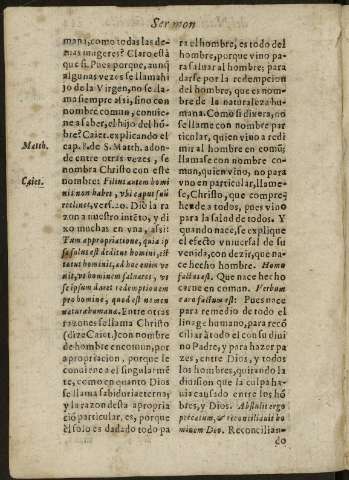 Sermon
mana, como todas las de-
mas mugeres? Claro està
que si. Pues porque, aunq̃
algunas vezes se llama hi
jo de la Virgen, no se lla
ma siempre assi, sino con
nombre comun, convie-
ne a saber, el hijo del hõ-
bre? Caiet. explicando el
cap. 8. de S. Matth. adon-
de entre otras vezes, se
nombra Christo con este
nombre: Filius autem homi
nis non habet, vbi caput suũ
reclinet, vers. 20. Diò la ra
zon a nuestro intẽto, y di
xo muchas en vna, assi:
Tam appropriatione, quia ip
se solus est deditus homini, est
tatus hominis, ad hoc enim ve
nit, vt hominem salvaret, vt
se ipsum daret redemptionem
pro homine, quod est nomen
naturæ humanæ. Entre otras
razones se llama Christo
(dize Caiet.) con nombre
de hombre en comun, por
apropriacion, porque le
conviene a el singularmẽ
te, como en quanto Dios
se llama sabiduria eterna;
y la razon desta apropria
ció particular, es, porque
èl solo es dadado todo pa
Matth.
Caiet.
ra el hombre, es todo del
hombre, porque vino pa-
ra salvar al hombre; para
darse por la redempcion
del hombre, que es nom-
bre de la naturaleza hu-
mana. Como si dixera, no
se llame con nombre par-
ticular, quien vino a redi
mir al hombre en comũ;
llamase con nombre co-
mun, quien vino, no para
vno en particular, llame-
se, Christo, que compreg
hende a todos, pues vino
para la salud de todos. Y
quando nace, se explique
el efecto vniversal de su
venida, con dezir, que na-
ce hecho hombre. Homo
factus est. Que nace hecho
carne en comun. Verbum
caro factum est: Pues nace
para remedio de todo el
linage humano, para recõ
ciliar à todo el con su divi
no Padre, y para hazer pa
zes, entre Dios, y todos
los hombres, quitando la
division que la culpa ha-
via causado entre los hõ
bres, y Dios. Abstulit ergo
peccatum, & reconciliavit ho
minem Deo. Reconcilian-
do